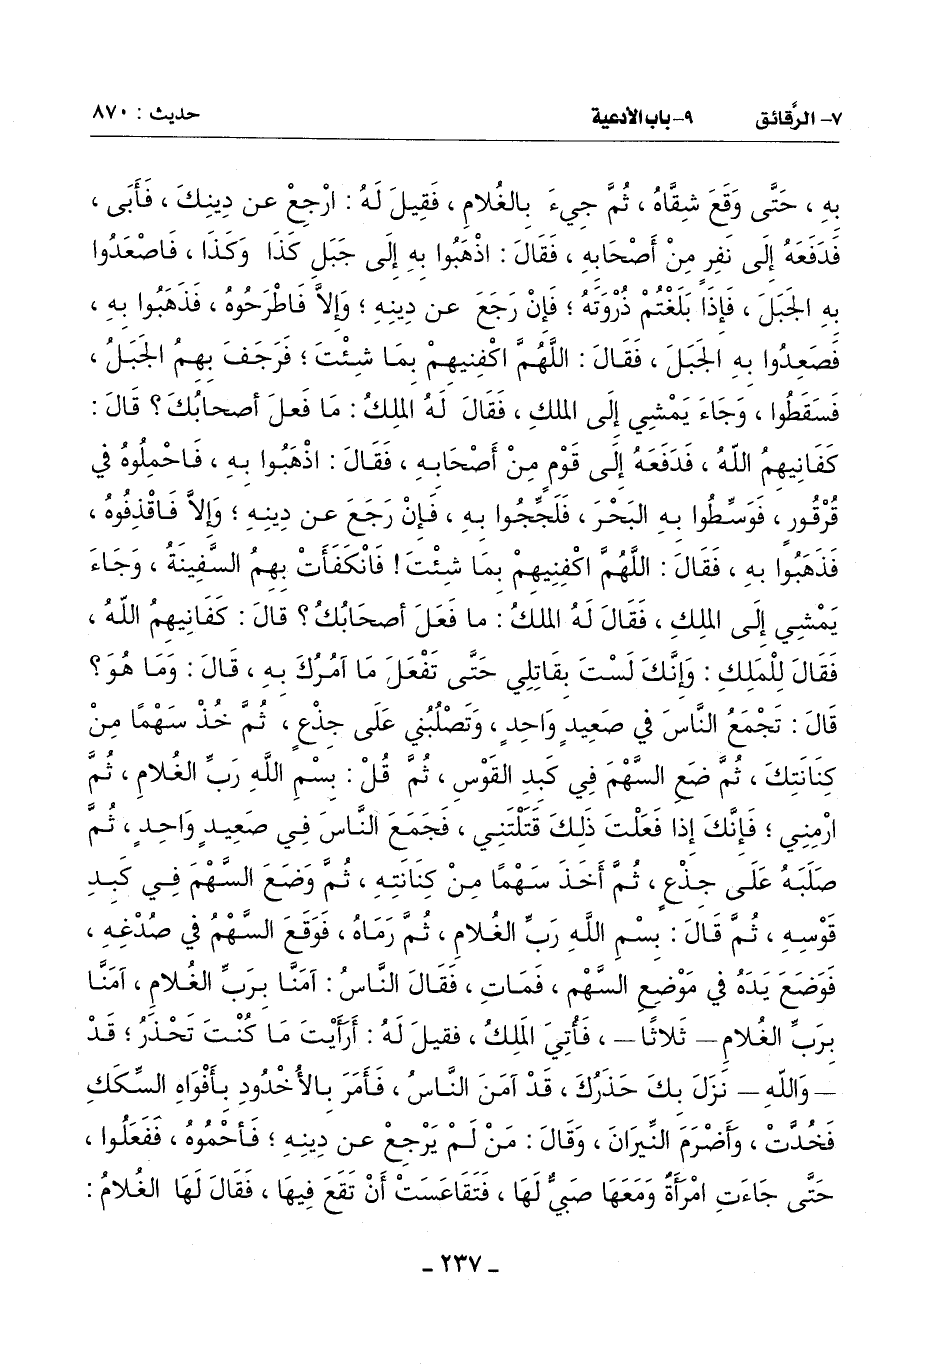 ٧- الرَّقائق ٩- باب الأدعية حديث : ٨٧٠
بِهِ ، حَتَّى وَقَعَ شِقَّاهُ ، ثُمَّ جِيءَ بِالغُلامِ ، فَقِيلَ لَهُ : ارْجِعْ عن دِينِكَ ، فَأَبَى ،
فَدَفَعَهُ إِلَى نَفَرٍ مِنْ أَصْحَابِهِ ، فَقَالَ : اذْهَبُوا بِهِ إِلَى جَبَلِ كَذَا وَكَذَا ، فَاصْعَدُوا
بِهِ الجَبَلَ ، فَإِذَا بَلَغْتُمْ ذُرْوَتَهُ ؛ فَإِنْ رَجَعَ عن دِينِهِ ؛ وَإِلاَّ فَاطْرَحُوهُ ، فَذَهَبُوا بِهِ ،
فَصَعِدُوا بِهِ الجَبَلَ ، فَقَالَ : اللَّهُمَّ اكْفِنِيهِمْ بِمَا شِئْتَ ؛ فَرَجَفَ بِهِمُ الجَبَلُ ،
فَسَقَطُوا ، وَجَاءَ يَمْشِي إِلَى الملكِ ، فَقَالَ لَهُ الملِكُ : مَا فَعلَ أصحابُكَ ؟ قَالَ :
كَفَانِيهِمُ اللَّهُ ، فَدَفَعَهُ إِلَى قَوْمٍ مِنْ أَصْحَابِهِ ، فَقَالَ : اذْهَبُوا بِهِ ، فَاحْمِلُوهُ فِي
قُرْقُورٍ ، فَوَسِّطُوا بِهِ البَحْرَ ، فَلَجِّجُوا بِهِ ، فَإِنْ رَجَعَ عن دِينِهِ ؛ وَإِلاَّ فَاقْذِفُوهُ ،
فَذَهَبُوا بِهِ ، فَقَالَ : اللَّهُمَّ اكْفِنِيهِمْ بِمَا شِئْتَ ! فَانْكَفَأَتْ بِهِمُ السَّفِينَةُ ، وَجَاءَ
يَمْشِي إِلَى الملِكِ ، فَقَالَ لَهُ الملكُ : ما فَعَلَ أصحَابُكُ ؟ قالَ : كَفَانِيهِمُ اللَّهُ ،
فَقَالَ لِلْمَلِكِ : وَإِنَّكَ لَسْتَ بِقَاتِلِي حَتَّى تَفْعَلَ مَا آمُرُكَ بِهِ ، قَالَ : وَمَا هُوَ ؟
قَالَ : تَجْمَعُ النَّاسَ فِي صَعِيدٍ وَاحِدٍ ، وَتَصْلُبُنِي عَلَى جِذْعٍ ، ثُمَّ خُذْ سَهْمًا مِنْ
كِنَانَتِكَ ، ثُمَّ ضَعِ السَّهْمَ فِي كَبِدِ القَوْسِ ، ثُمَّ قُلْ : بِسْمِ اللَّهِ رَبِّ الغُلامِ ، ثُمَّ
ارْمِنِي ؛ فَإِنَّكَ إِذَا فَعَلْتَ ذَلِكَ قَتَلْتَنِي ، فَجَمَعَ النَّاسَ فِي صَعِيدٍ وَاحِدٍ ، ثُمَّ
صَلَبَهُ عَلَى جِذْعٍ ، ثُمَّ أَخَذَ سَهْمًا مِنْ كِنَانَتِهِ ، ثُمَّ وَضَعَ السَّهْمَ فِي كَبِدِ
قَوْسِهِ ، ثُمَّ قَالَ : بِسْمِ اللَّهِ رَبِّ الغُلامِ ، ثُمَّ رَمَاهُ ، فَوَقَعَ السَّهْمُ فِي صُدْغِهِ ،
فَوَضَعَ يَدَهُ فِي مَوْضِعِ السَّهْمِ ، فَمَاتِ ، فَقَالَ النَّاسُ : آمَنَّا بِرَبِّ الغُلامِ ، آمَنَّا
بِرَبِّ الغُلامِ – ثَلاثًا – ، فَأُتِيَ الَمَلِكُ ، فقِيلَ لَهُ : أَرَأَيْتَ مَا كُنْتَ تَحْذَرُ ؛ قَدْ
– وَاللَّهِ – نَزَلَ بِكَ حَذَرُكَ ، قَدْ آمَنَ النَّاسُ ، فَأَمَرَ بِالأُخْدُودِ بِأَفْوَاهِ السِّكَكِ
فَخُدَّتْ ، وَأَضْرَمَ النِّيرَانَ ، وَقَالَ : مَنْ لَمْ يَرْجِعْ عن دِينِهِ ؛ فَأَحْمُوهُ ، فَفَعَلُوا ،
حَتَّى جَاءَتِ امْرَأَةٌ وَمَعَهَا صَبِيٌّ لَهَا ، فَتَقَاعَسَتْ أَنْ تَقَعَ فِيهَا ، فَقَالَ لَهَا الغُلامُ :
- ٢٣٧ -